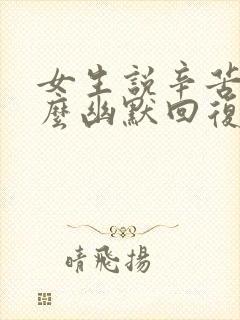 女生説辛苦
麼幽默回復
晴飛揚